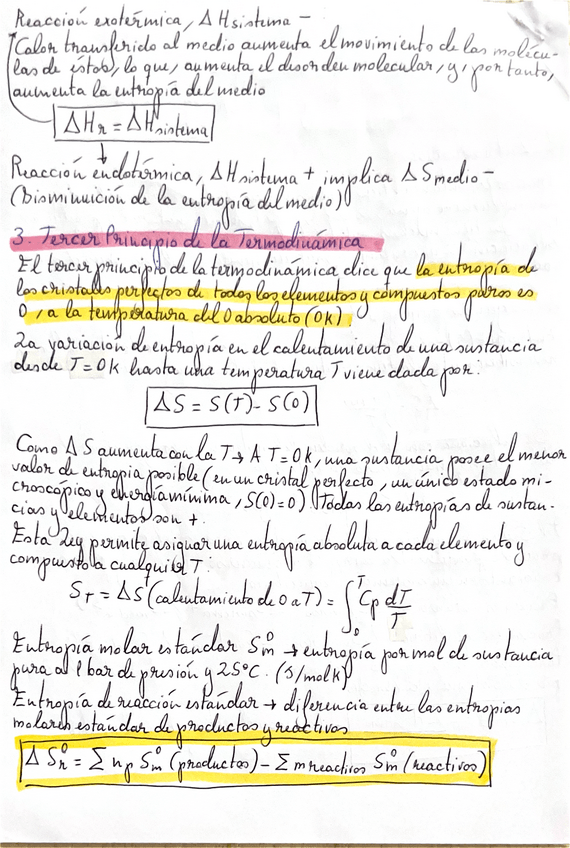 Reacción exotérmica, ΔHsistema -
Calor transferido al medio aumenta el movimiento de las molécu-
las de éstos, lo que, aumenta el desorden molecular, y, por tanto,
aumenta la entropía del medio
ΔHr = ΔHsistema
Reacción endotérmica, ΔHsistema + implica ΔSmedio -
(Disminuición de la entropía del medio)
3. Tercer Principio de la Termodinámica
El tercer principio de la termodinámica dice que la entropía de
los cristales perfectos de todos los elementos y compuestos puros es
0, a la temperatura del 0 absoluto (0K).
La variación de entropía en el calentamiento de una sustancia
desde T=0K hasta una temperatura T viene dada por:
ΔS = S(T) - S(0)
Como ΔS aumenta con la T → A T=0K, una sustancia posee el menor
valor de entropia posible (en un cristal perfecto, un único estado mi-
croscópico y energía mínima, S(0)=0). Todas las entropías de sustan-
cias y elementos son +.
Esta Ley permite asignar una entropía absoluta a cada elemento y
compuesto a cualquier T:
S_T = ΔS (calentamiento de 0 a T) = ∫₀ᵀ Cp dT/T
Entropía molar estándar S°m → entropía por mol de sustancia
pura a 1 bar de presión y 25°C. (J/molK)
Entropía de reacción estándar → diferencia entre las entropias
molares estándar de productos y reactivos
ΔS°r = Σ np S°m (productos) - Σ m reactivos S°m (reactivos)